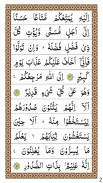 إِلَيْهِ يُمَتِّعْكُم مَّتَاعًا حَسَنًا
إِلَىٰ أَجَلٍ مُّسَمًّى وَيُؤْتِ كُلَّ
ذِي فَضْلٍ فَضْلَهُ وَإِن تَوَلَّوْا
فَإِنِّي أَخَافُ عَلَيْكُمْ عَذَابَ يَوْمٍ
كَبِيرٍ إِلَى اللَّهِ مَرْجِعُكُمْ
وَهُوَ عَلَىٰ كُلِّ شَيْءٍ قَدِيرٌ
أَلَا إِنَّهُمْ يَثْنُونَ صُدُورَهُمْ
لِيَسْتَخْفُوا مِنْهُ أَلَا حِينَ
يَسْتَغْشُونَ ثِيَابَهُمْ يَعْلَمُ
مَا يُسِرُّونَ وَمَا يُعْلِنُونَ
إِنَّهُ عَلِيمٌ بِذَاتِ الصُّدُورِ